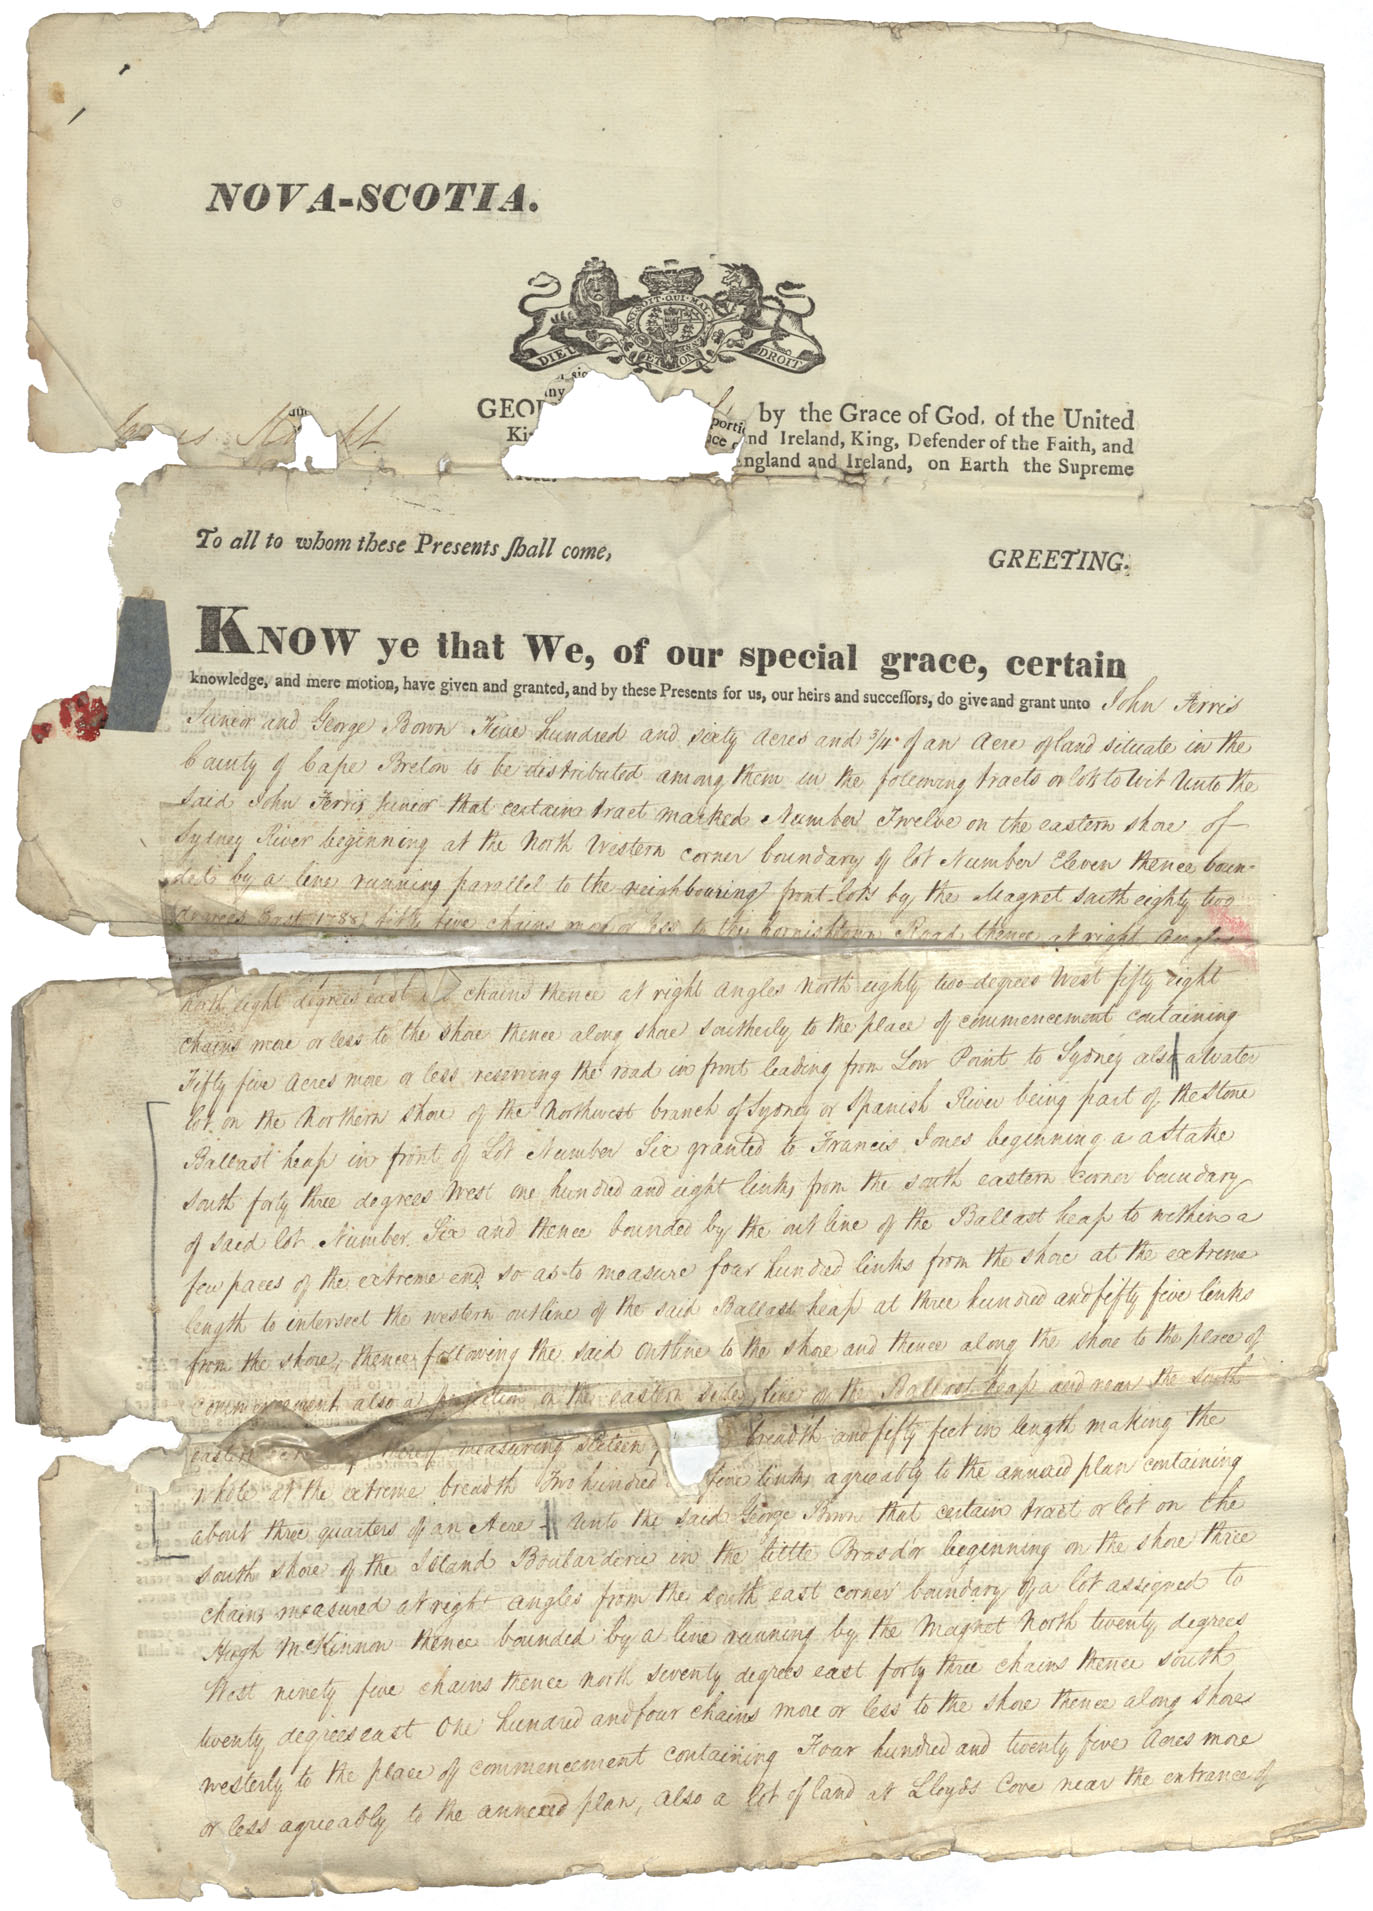 NOVA-SCOTIA.
DIEU ET MON DROIT
GEO by the Grace of God, of the United
Ki nd Ireland, King, Defender of the Faith, and
England and Ireland, on Earth the Supreme
To all to whom these Presents shall come, GREETING.
KNOW ye that We, of our special grace, certain
knowledge, and mere motion, have given and granted, and by these Presents for us, our heirs and successors, do give and grant unto John Ferris
Junior and George Bown Five hundred and sixty acres and 3/4 of an Acre of land situate in the
County of Cape Breton to be distributed among them in the following tracts or lots to wit Unto the
said John Ferris Junior that certain tract marked Number Twelve on the eastern shore of
Sydney River beginning at the North Western corner boundary of lot Number Eleven thence boun-
ded by a line running parallel to the neighbouring front lots by the Magnet south eighty two
degrees East 1788 fifty five chains more or less to the Cornishtown Road thence at right angles
north eight degrees east chains thence at right angles North eighty two degrees West fifty eight
chains more or less to the shore thence along shore southerly to the place of commencement containing
Fifty five Acres more or less reserving the road in front leading from Low Point to Sydney also a Water
lot on the Northern shore of the Northwest branch of Sydney or Spanish River being part of the Stone
Ballast heap in front of Lot Number Six granted to Francis Jones beginning a a Stake
South forty three degrees West one hundred and eight links from the south eastern corner boundary
of said lot Number Six and thence bounded by the out line of the Ballast heap to within a
few paces of the extreme end so as to measure four hundred links from the shore at the extreme
length to intersect the western outline of the said Ballast heap at three hundred and fifty five links
from the shore, thence following the said outline to the shore and thence along the shore to the place of
commencement also a projection on the eastern side line of the Ballast heap and near the south
eastern measuring sixteen breadth and fifty feet in length making the
whole at the extreme breadth Two hundred five links agreeably to the annexed plan containing
about three quarters of an Acre Unto the said George Bown that certain tract or lot on the
south shore of the Island Boularderie in the little Brasd'or beginning on the shore three
chains measured at right angles from the south east corner boundary of a lot assigned to
Hugh McKinnon thence bounded by a line running by the Magnet North twenty degrees
West ninety five chains thence north seventy degrees east forty three chains thence south
twenty degrees east One hundred and four chains more or less to the shore thence along shore
westerly to the place of commencement containing Four hundred and twenty five Acres more
or less agreeably to the annexed plan, also a lot of land at Lloyds Cove near the entrance of